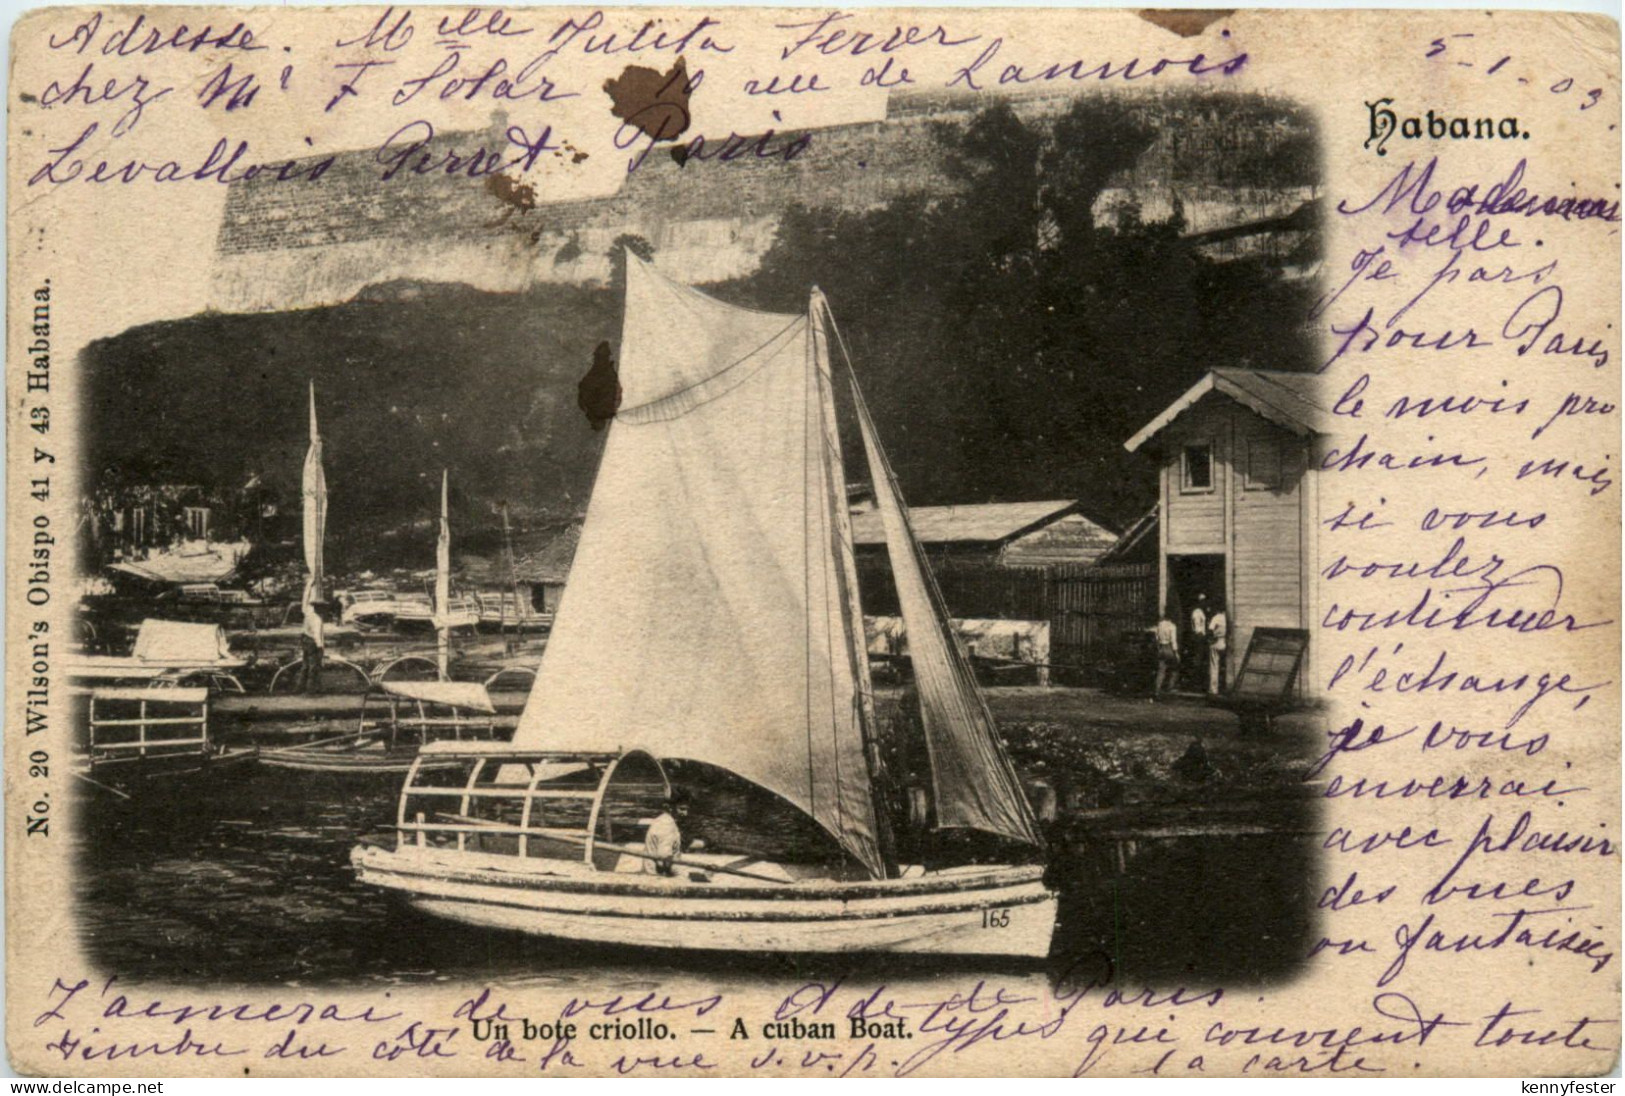 Adresse. Mlle Julita Ferrer
chez Mr F Solar 10 rue de Lannois
Levallois Perret Paris.
5-1-03.
Habana.
Mademoi
selle.
Je pars
pour Paris
le mois pro
chain, mais
si vous
voulez
continuer
l'échange,
je vous
enverrai
avec plaisir
des vues
ou fantaisies
J'aimerai de vues de Paris.
de types qui couvrent toute
la carte.
timbre du côté de la vue s.v.p.
Un bote criollo. — A cuban Boat.
No. 20 Wilson's Obispo 41 y 43 Habana.
165
kennyfester